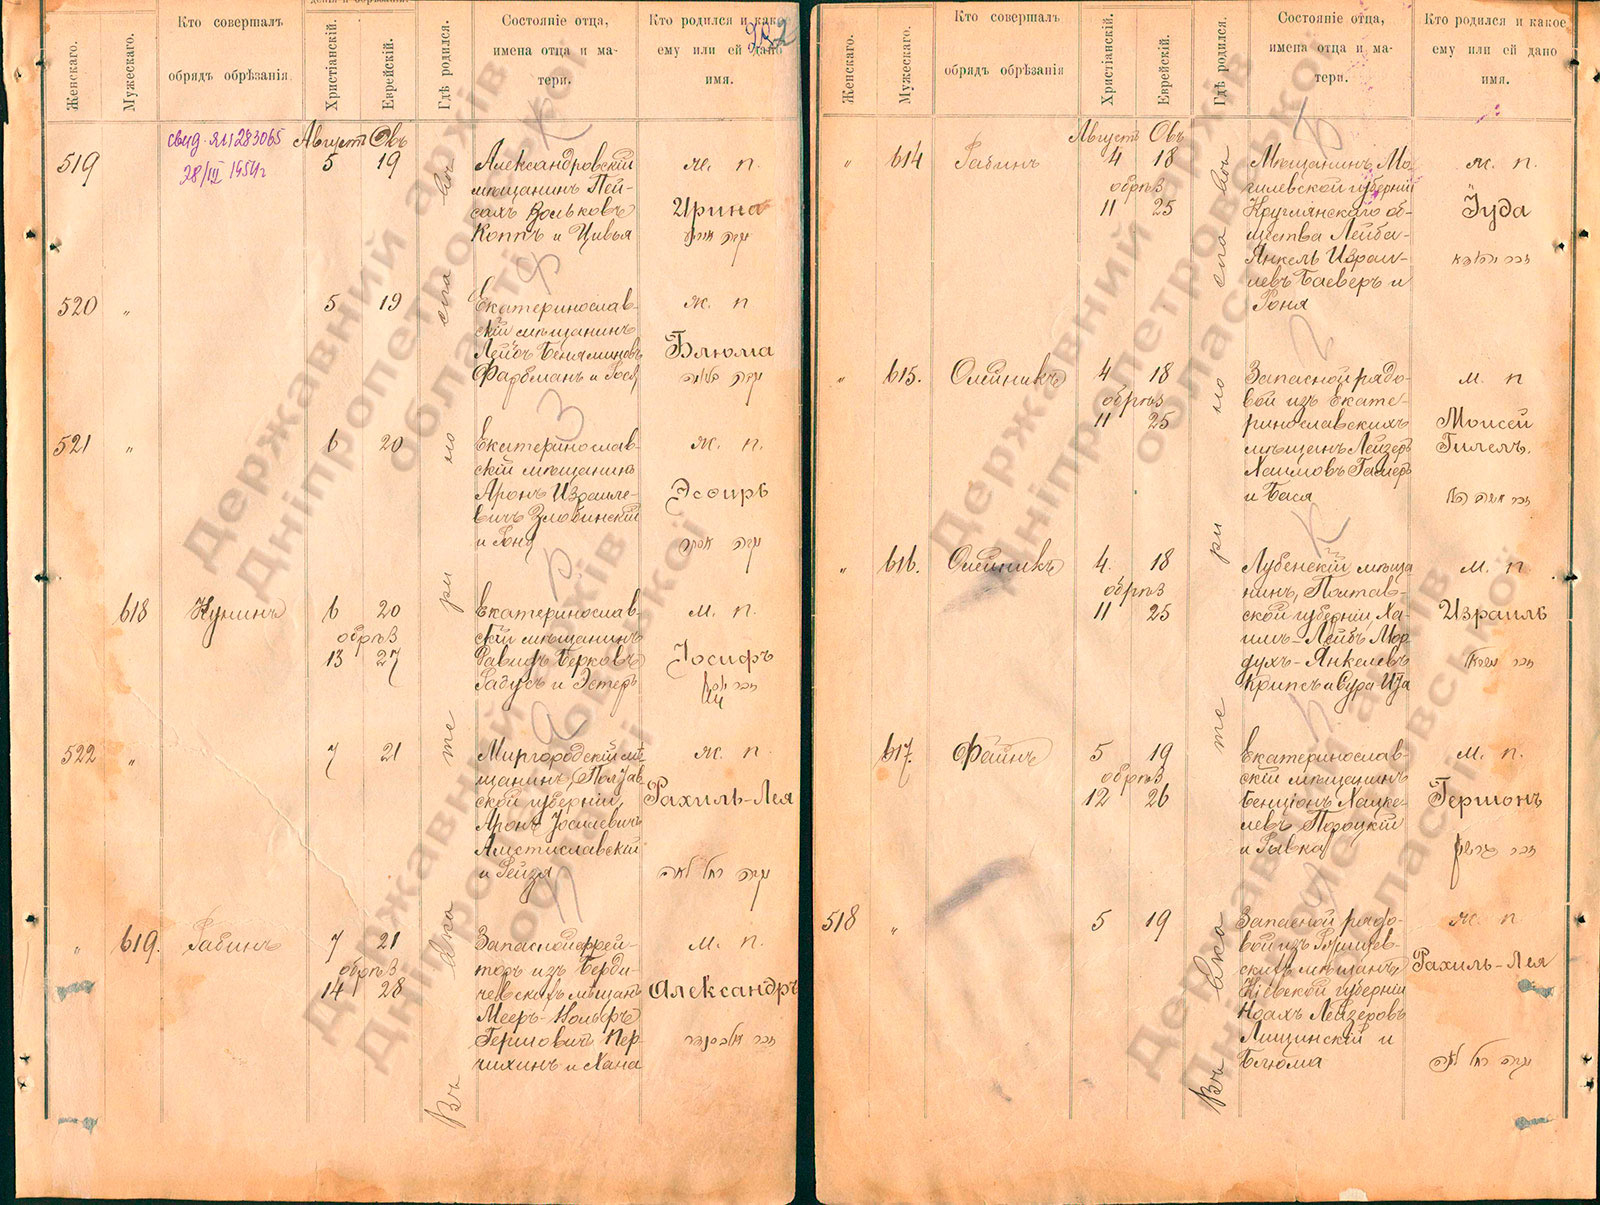 Женскаго.
Мужескаго.
Кто совершалъ
обрядъ обрѣзанія.
Христіанскій.
Еврейскій.
Гдѣ родился.
Состояніе отца,
имена отца и ма-
тери.
Кто родился и какое
ему или ей дано
имя.
232
свид. ЯЛ 1283065
28/III 1954 г
Августъ Овъ
519
5 19
Александровскій
мѣщанинъ Пей-
сахъ Вольковъ
Коппъ и Цивья
ж. п.
Ирина
520 "
5 19
Екатеринослав-
скій мѣщанинъ
Лейбъ Беняминовъ
Фарбманъ и Хося
ж. п
Блюма
521 "
6 20
Екатеринослав-
скій мѣщанинъ
Аронъ Израиле-
вичъ Злобинскій
и Роня
ж. п.
Эсфирь
618 Кунинъ
6 20
обрѣз
13 27
Екатеринослав-
скій мѣщанинъ
Давидъ Берковъ
и Эстеръ
м. п.
Іосифъ
522 "
7 21
Миргородскій мѣ-
щанинъ, Полтав-
ской губерніи,
Аронъ Іосилевичъ
Амстиславскій
и Рейзя
ж. п.
Рахиль-Лея
רחל לאה
" 619. Рабинъ
7 21
обрѣз
14 28
Запасной ефрей-
торъ изъ Берди-
чевскихъ мѣщанъ
Мееръ-Вольфъ
Гершовичъ Пер-
чихинъ и Хана
м. п.
Александръ
Въ Екатеринославѣ
Женскаго.
Мужескаго.
Кто совершалъ
обрядъ обрѣзанія
Христіанскій.
Еврейскій.
Гдѣ родился.
Состояніе отца,
имена отца и ма-
тери.
Кто родился и какое
ему или ей дано
имя.
Августъ Овъ
" 614 Рабинъ
4 18
обрѣз
11 25
Мѣщанинъ Мо-
гилевской губерніи
Круглянскаго об-
щества Лейба-
Янкель Израи-
левъ Баеверъ и
Роня
м. п.
Іуда
" 615. Олейникъ
4 18
обрѣз
11 25
Запасной рядо-
вой изъ Екате-
ринославскихъ
мѣщанъ Лейзеръ
Хаимовъ
и Бася
м. п
Моисей
Гилель.
" 616. Олейникъ
4. 18
обрѣз
11 25
Лубенскій мѣща
нинъ, Полтав-
ской губерніи, Ха-
имъ-Лейбъ Мор-
духъ-Янкелевъ
Крипсъ и Сура Иза
м. п
Израиль
617. Файнъ
5 19
обрѣз
12 26
Екатеринослав-
скій мѣщанинъ
Бенціонъ Хацке-
левъ Пороцкій
и Рывка
м. п.
Гершонъ
518 "
5 19
Запасной рядо-
вой изъ
скихъ мѣщанъ
Кіевской губерніи
Ноахъ Лейзеровъ
Лищинскій и
Блюма
ж. п
Рахиль-Лея
רחל לאה
Въ Екатеринославѣ
Державний архів
Дніпропетровської
області
Державний архів
Дніпропетровської
області
Державний архів
Дніпропетровської
області
Державний архів
Дніпропетровської
області